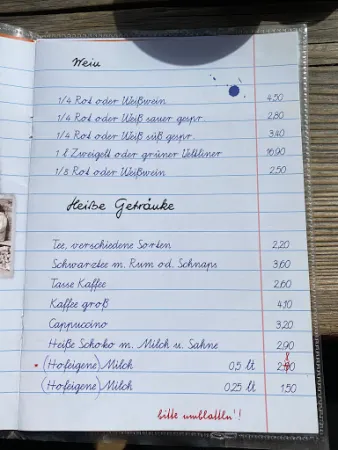 Wein
1/4 Rot oder Weißwein 4,50
1/4 Rot oder Weiß sauer gespr. 2,80
1/4 Rot oder Weiß süß gespr. 3,40
1 l Zweigelt oder grüner Veltliner 16,90
1/8 Rot oder Weißwein 2,50
Heiße Getränke
Tee, verschiedene Sorten 2,20
Schwarztee m. Rum od. Schnaps 3,60
Tasse Kaffee 2,60
Kaffee groß 4,10
Cappuccino 3,20
Heiße Schoko m. Milch u. Sahne 2,90
* (Hofeigene) Milch 0,5 lt
(Hofeigene) Milch 0,25 lt 1,50
bitte umblattln'!